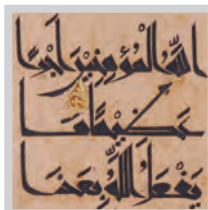 الله المؤمنين اجرا
عظيما ما
يفعل الله بعذا